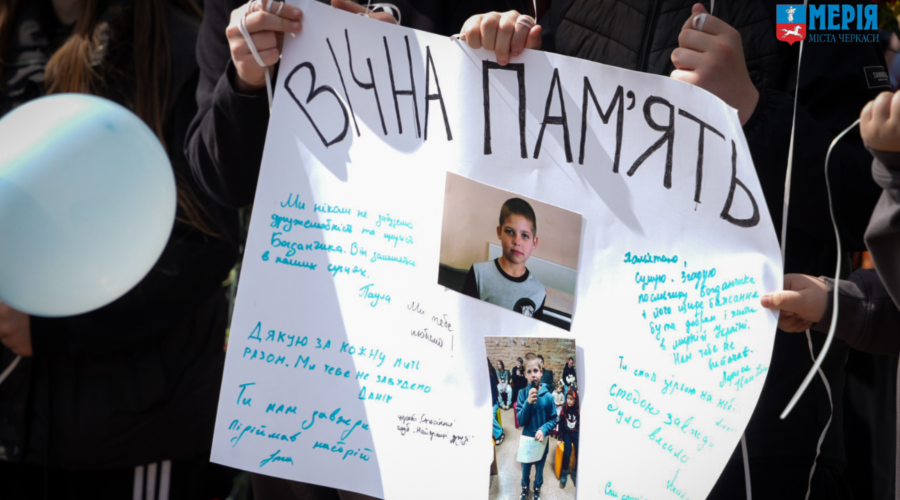 МЕРІЯ
МІСТА ЧЕРКАСИ
ВІЧНА ПАМ'ЯТЬ
Ми ніколи не забудемо
дружелюбність та щирість
Богданчика. Він залишиться
в наших серцях.
Паула
Ми тебе
любимо!
ДЯКУЮ ЗА КОЖНУ МИТЬ
РАЗОМ. МИ ТЕБЕ НЕ ЗАБУДЕМО
ДАНІК
Ти нам завжди
піріймав настрій
Пам'ятаю,
сумую. Згадую
посмішку Богданчика
і його щире бажання
бути добрим і жити
в мирній Україні.
Нам тебе не
Ти став зіркою на небі
с тобою завжди
було весело